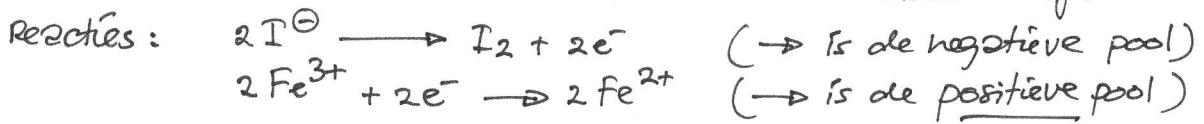 Reacties: 2I⊖ ⟶ I2 + 2e⁻ (→ is de negatieve pool)
2Fe³⁺ + 2e⁻ → 2Fe²⁺ (→ is de positieve pool)